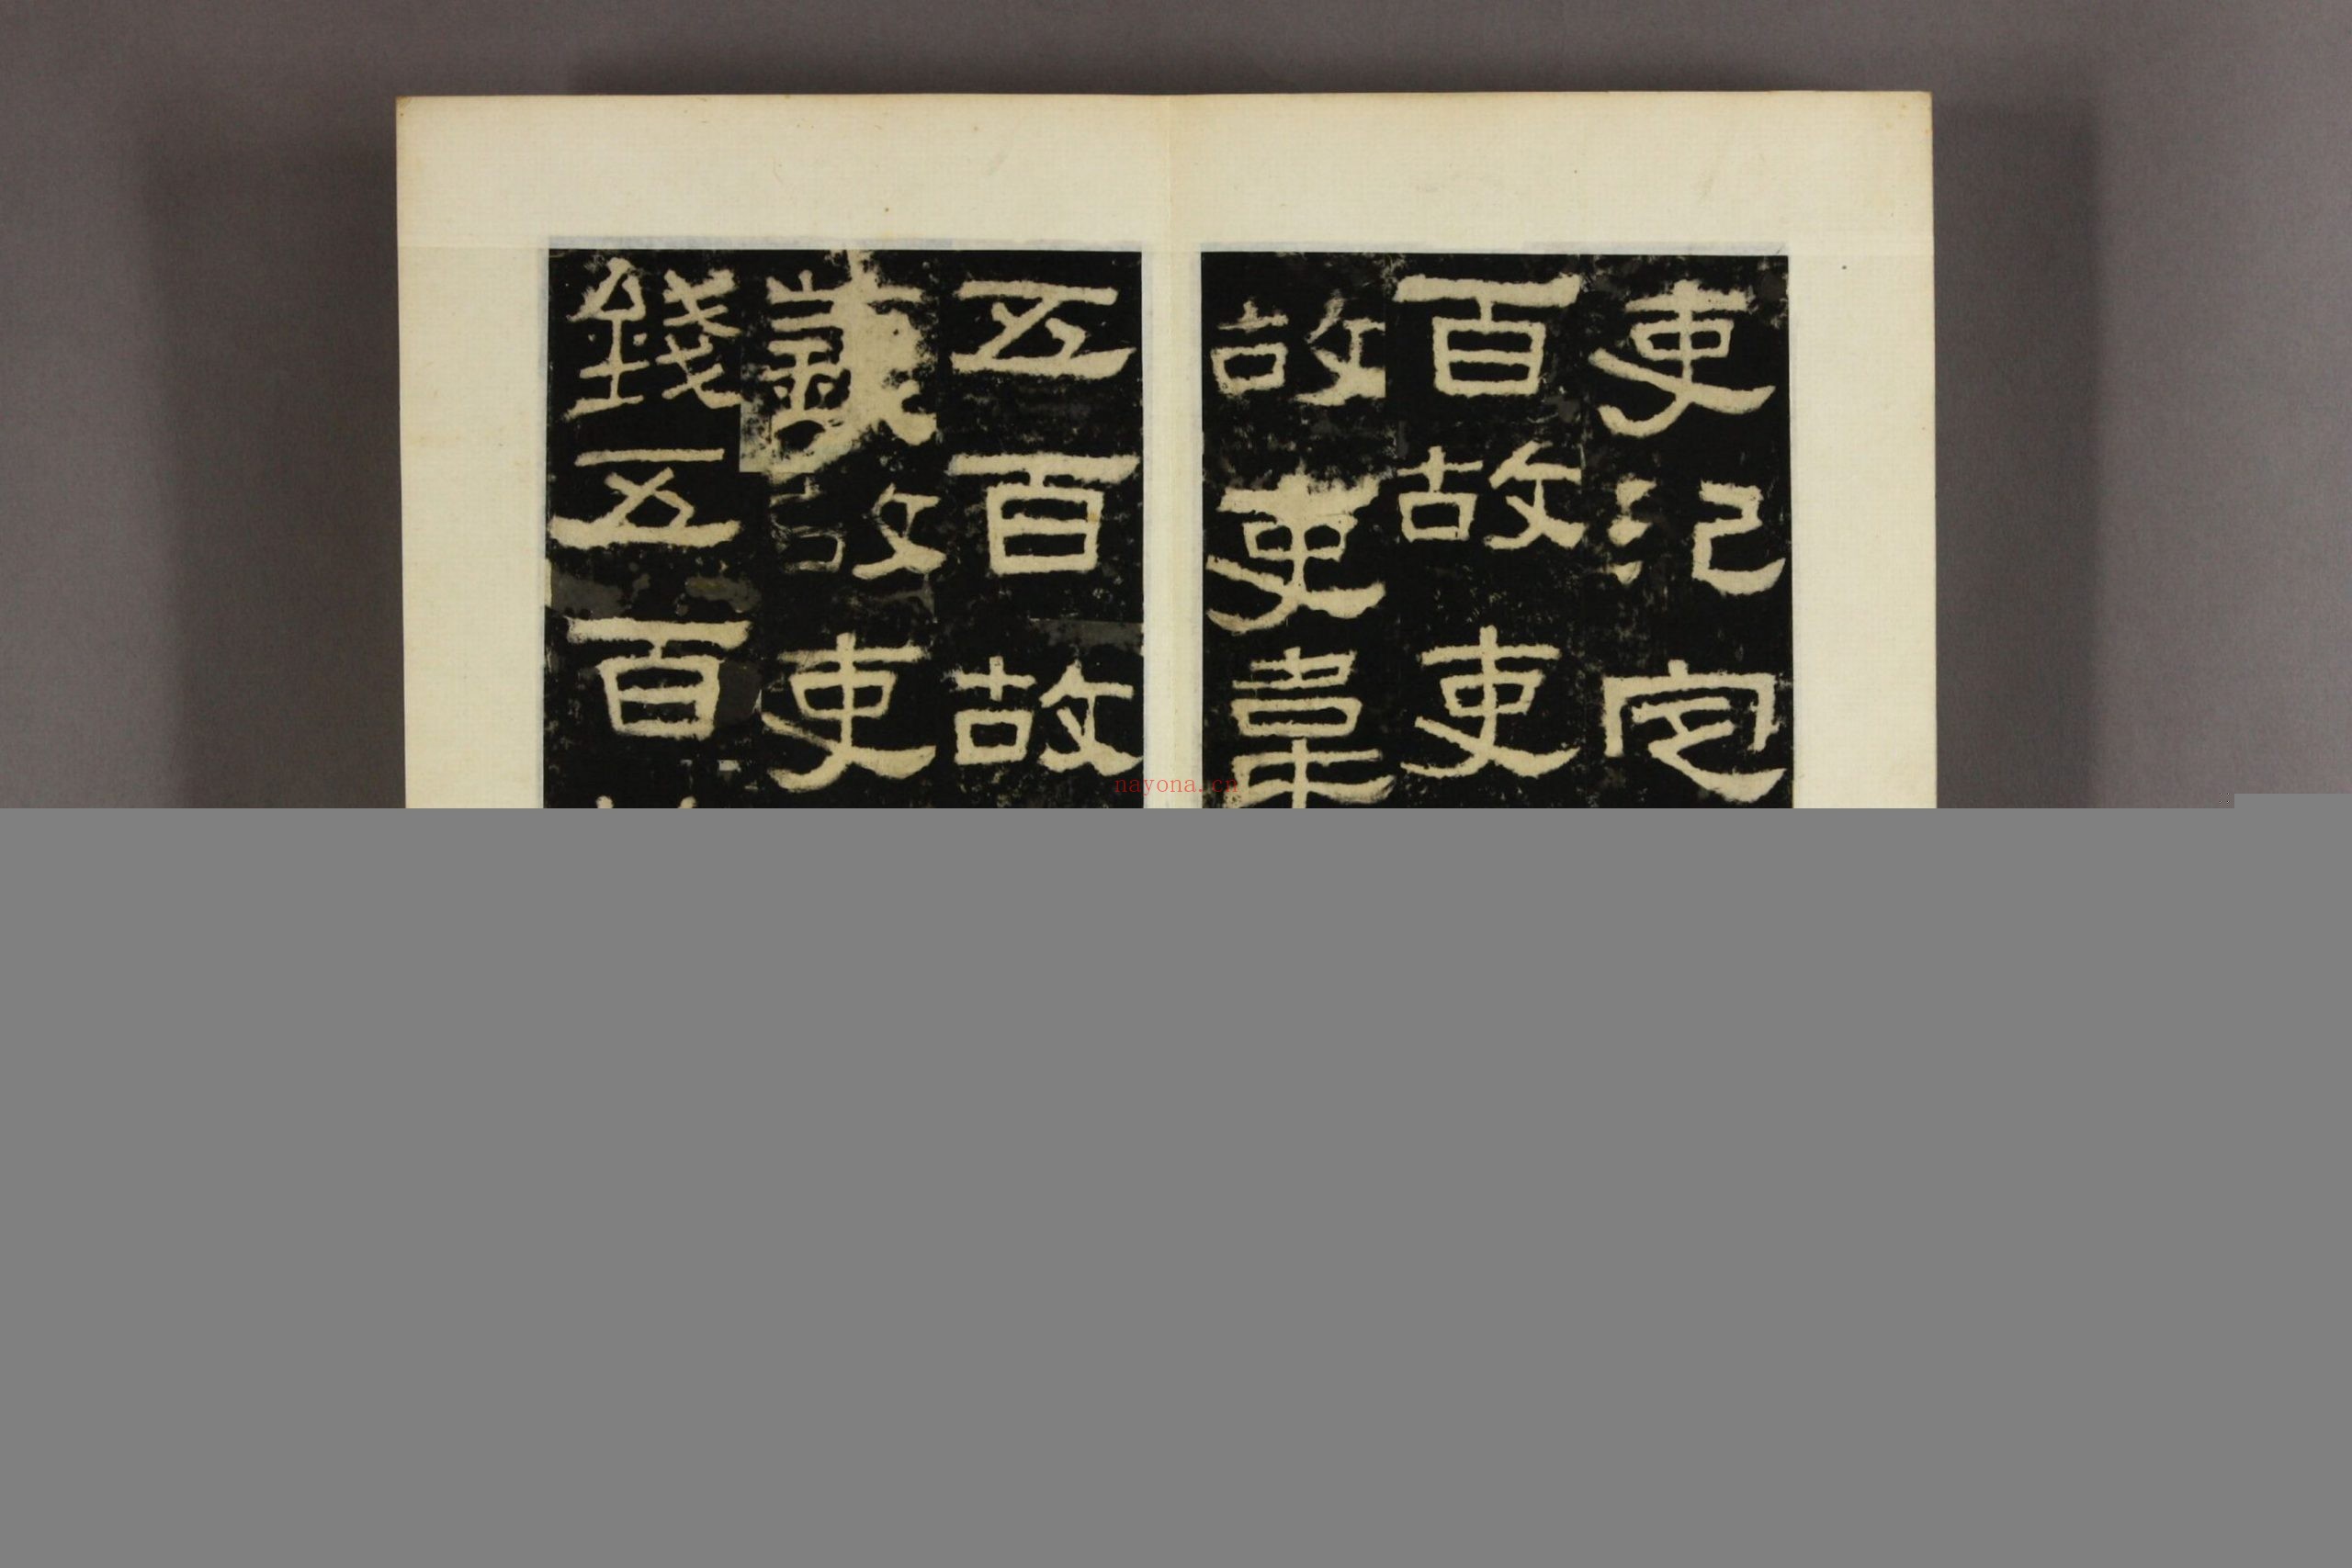 吏氾定
百故吏
故吏韋
五百故
故吏
錢五百
nayona.cn